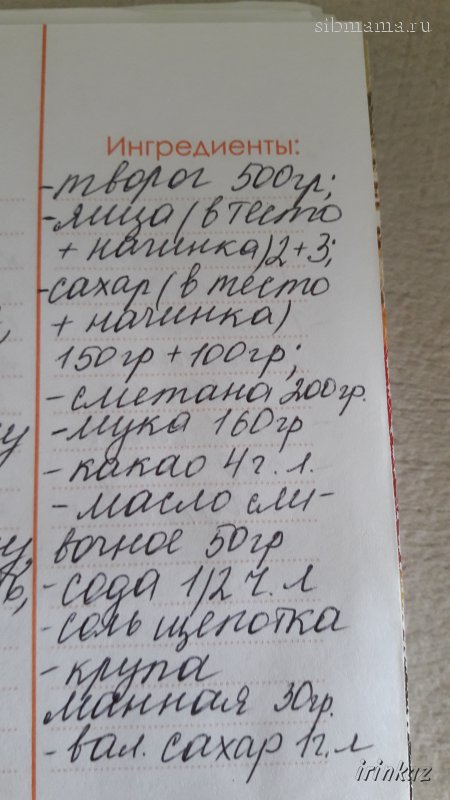 sibmama.ru
Ингредиенты:
-творог 500гр;
-яйца (в тесто
+ начинка) 2+3;
-сахар (в тесто
+ начинка)
150гр + 100гр;
-сметана 200гр.
-мука 160гр
-какао 4г.л.
-масло сли-
вочное 50гр
-сода 1/2 ч.л
-соль щепотка
-крупа
манная 30гр.
-вал. сахар 1г.л
irinkaz